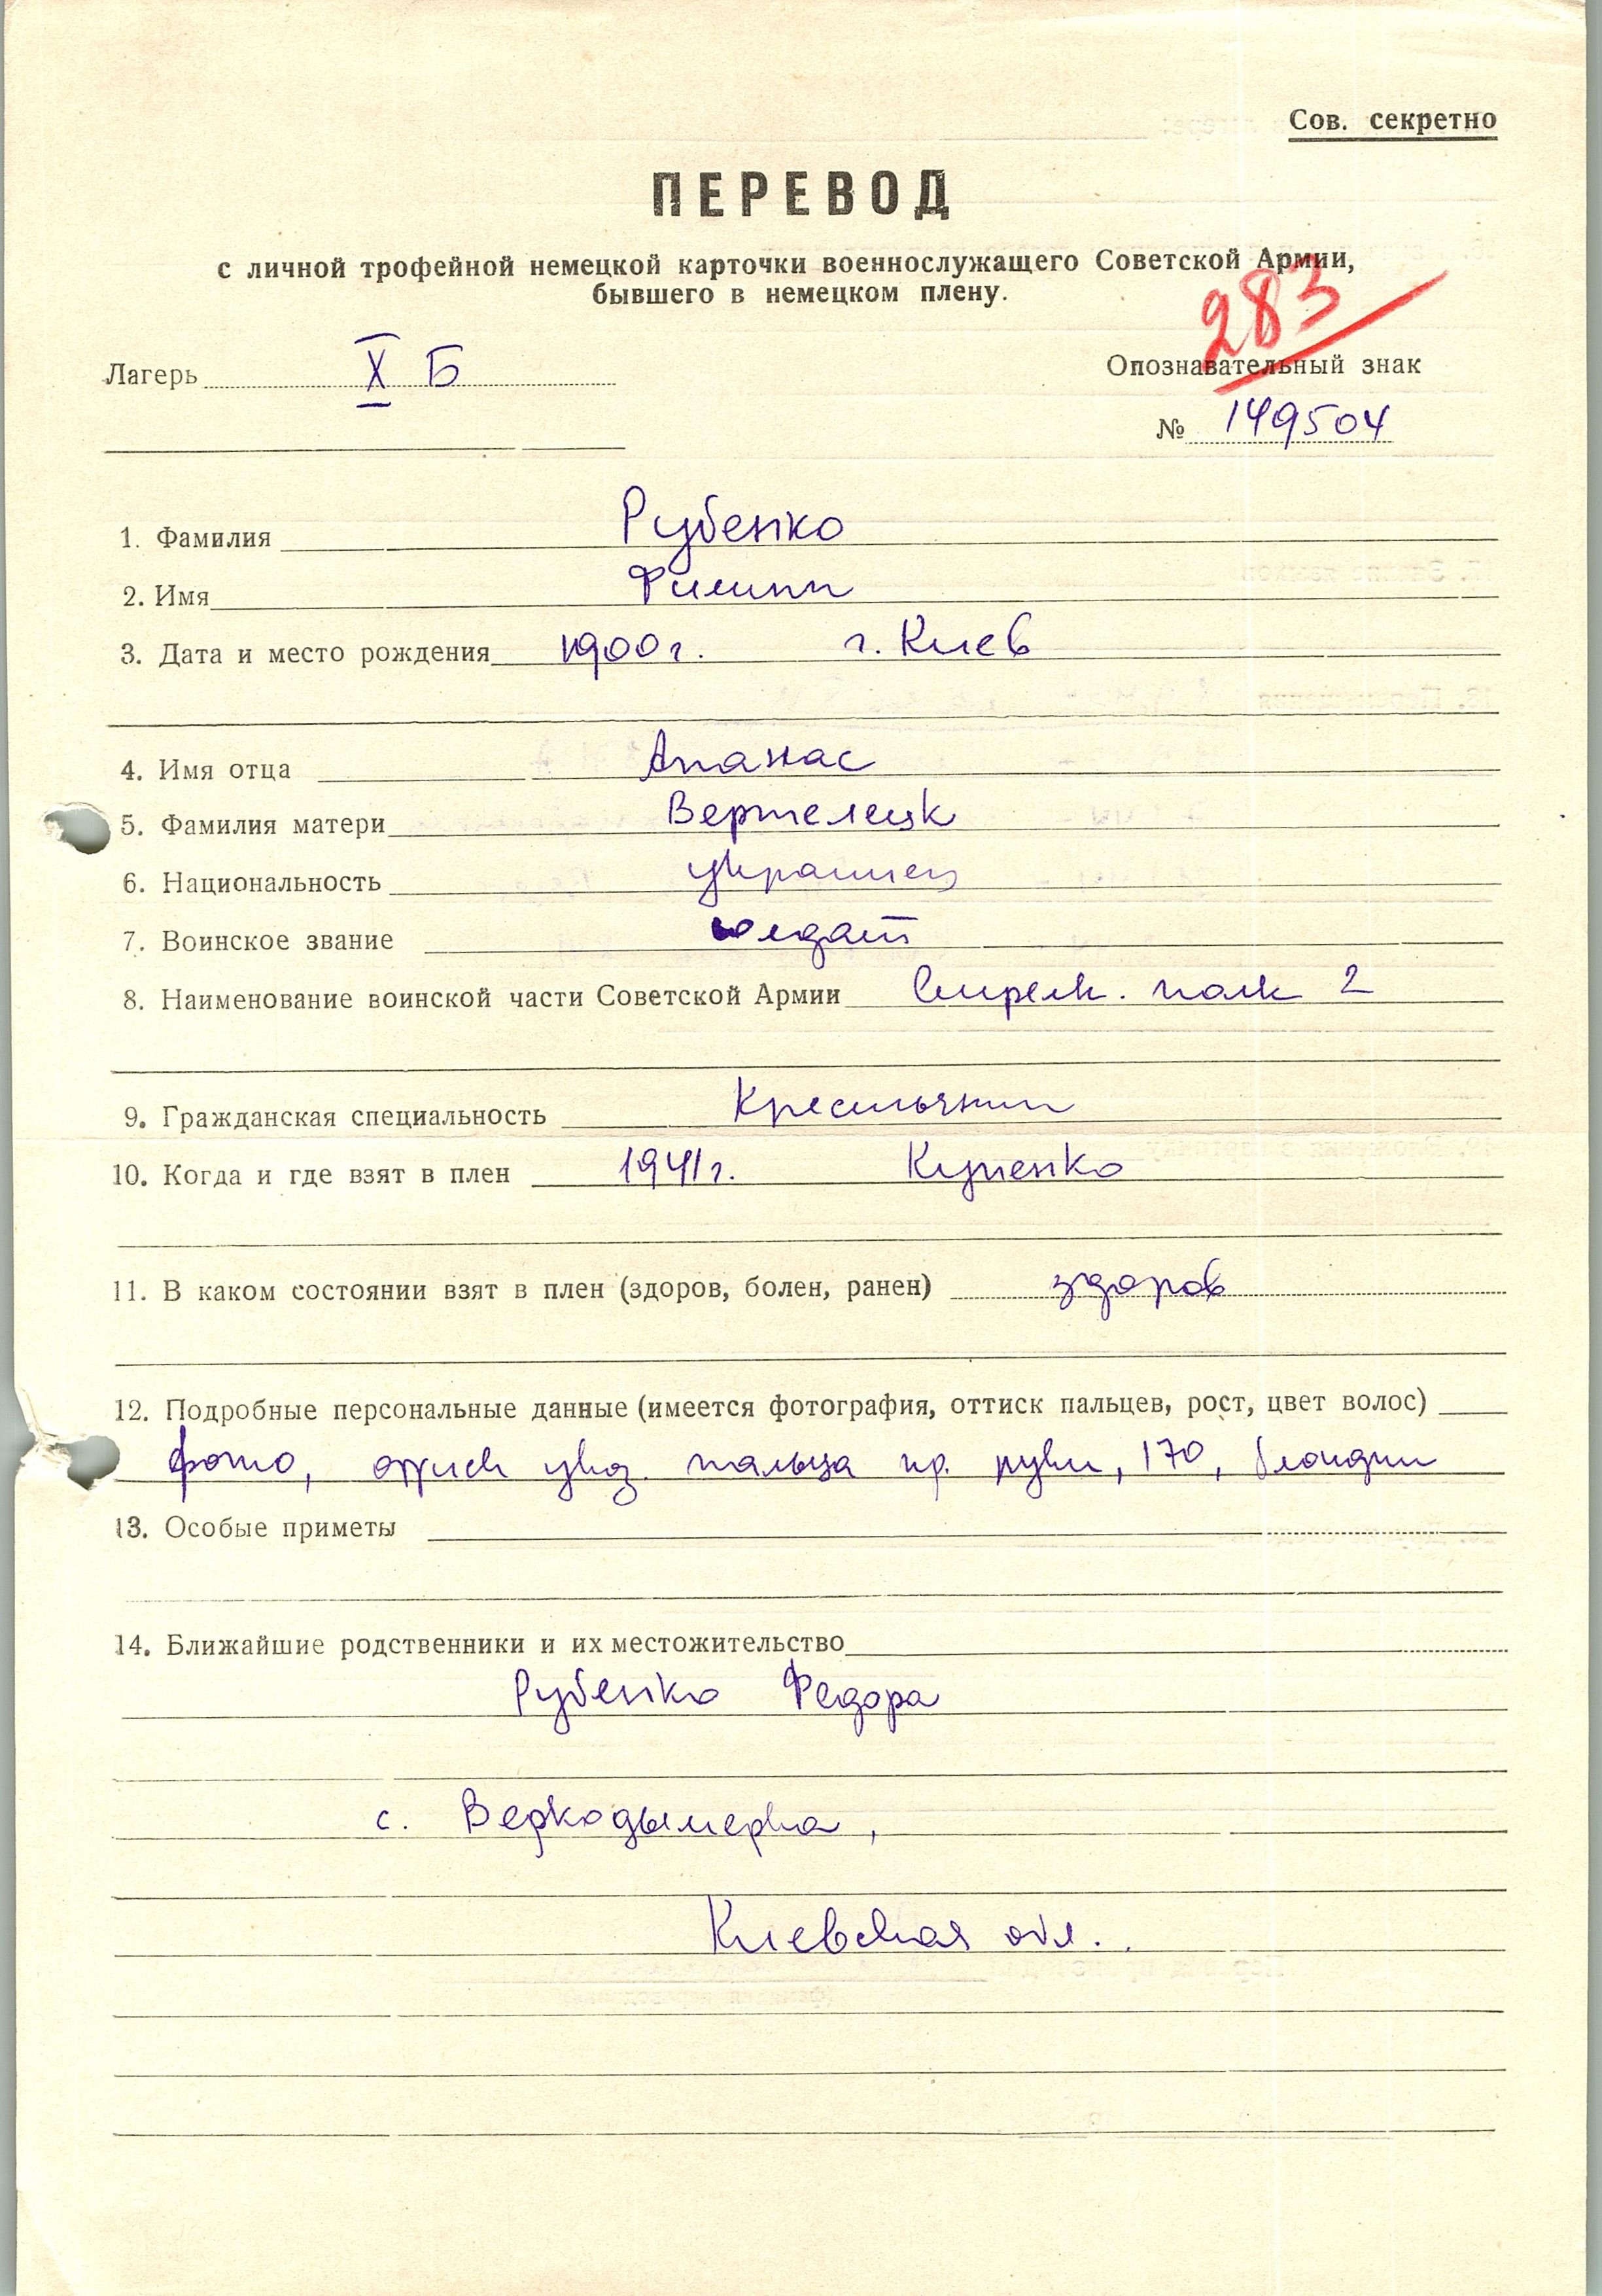 Сов. секретно
ПЕРЕВОД
с личной трофейной немецкой карточки военнослужащего Советской Армии,
бывшего в немецком плену.
283
Лагерь X Б
Опознавательный знак
№ 149504
1. Фамилия Рубенко
2. Имя Филипп
3. Дата и место рождения 1900 г. г. Киев
4. Имя отца Апанас
5. Фамилия матери Вертелецк
6. Национальность украинец
7. Воинское звание солдат
8. Наименование воинской части Советской Армии Стрелк. полк 2
9. Гражданская специальность Крестьянин
10. Когда и где взят в плен 1941 г. Купенко
11. В каком состоянии взят в плен (здоров, болен, ранен) здоров
12. Подробные персональные данные (имеется фотография, оттиск пальцев, рост, цвет волос)
фото, оттиск указ. пальца пр. руки, 170, блондин
13. Особые приметы
14. Ближайшие родственники и их местожительство
Рубенко Федора
с. Веркодымерка,
Киевская обл.